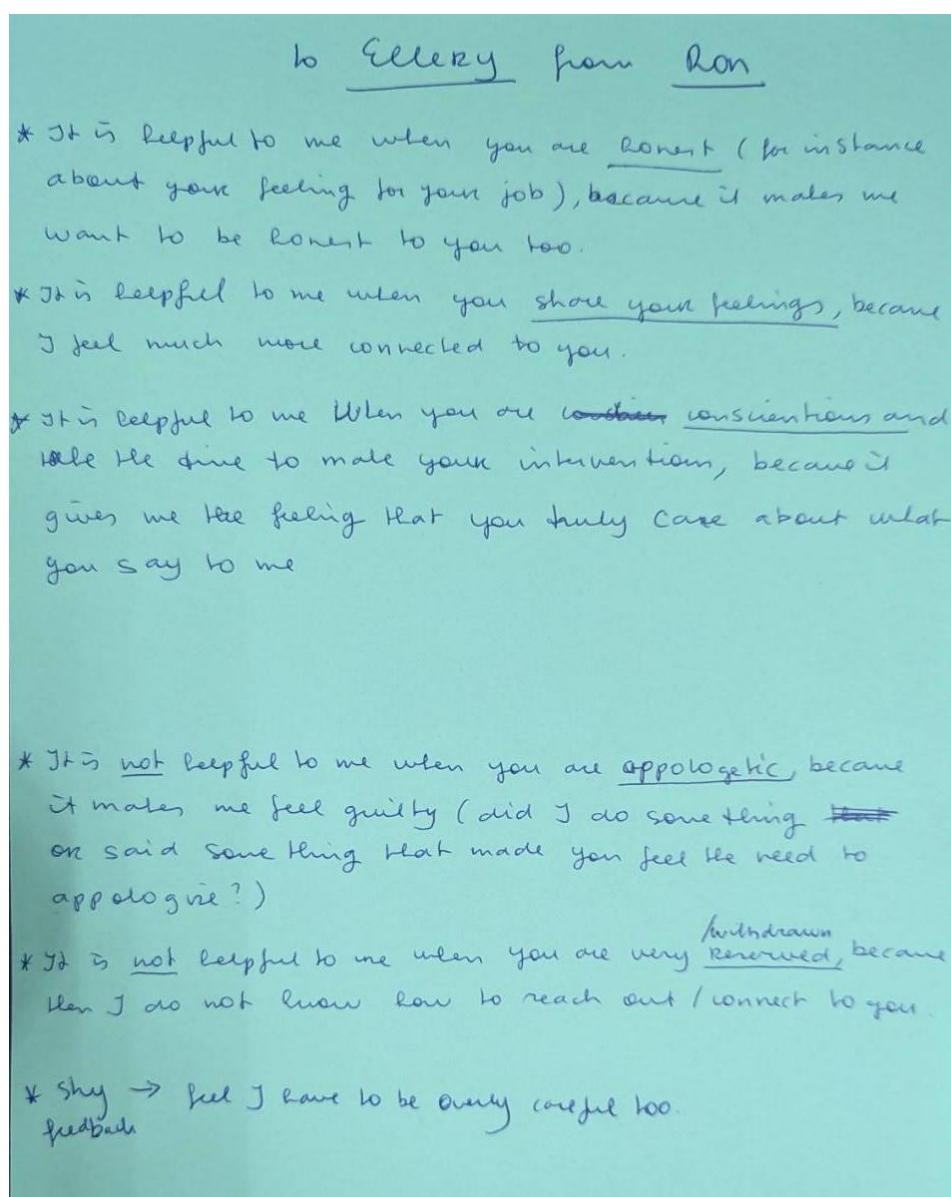 to Ellery from Ron
* It is helpful to me when you are honest (for instance
about your feeling for your job), because it makes me
want to be honest to you too.
* It is helpful to me when you share your feelings, because
I feel much more connected to you.
* It is helpful to me when you are conscientious and
take the time to make your interventions, because it
gives me the feeling that you truly care about what
you say to me
* It is not helpful to me when you are appologetic, because
it makes me feel guilty (did I do something
or said something that made you feel the need to
appologize?)
/withdrawn
* It is not helpful to me when you are very reserved, because
then I do not know how to reach out / connect to you.
* Shy → feel I have to be overly careful too.
feedback